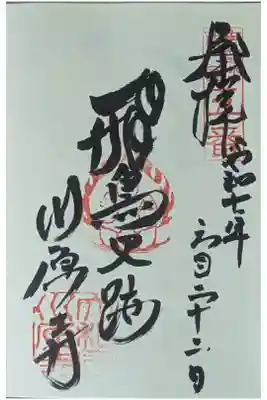 奉拝
令和七年
六月二十二日
飛鳥史跡
川原寺